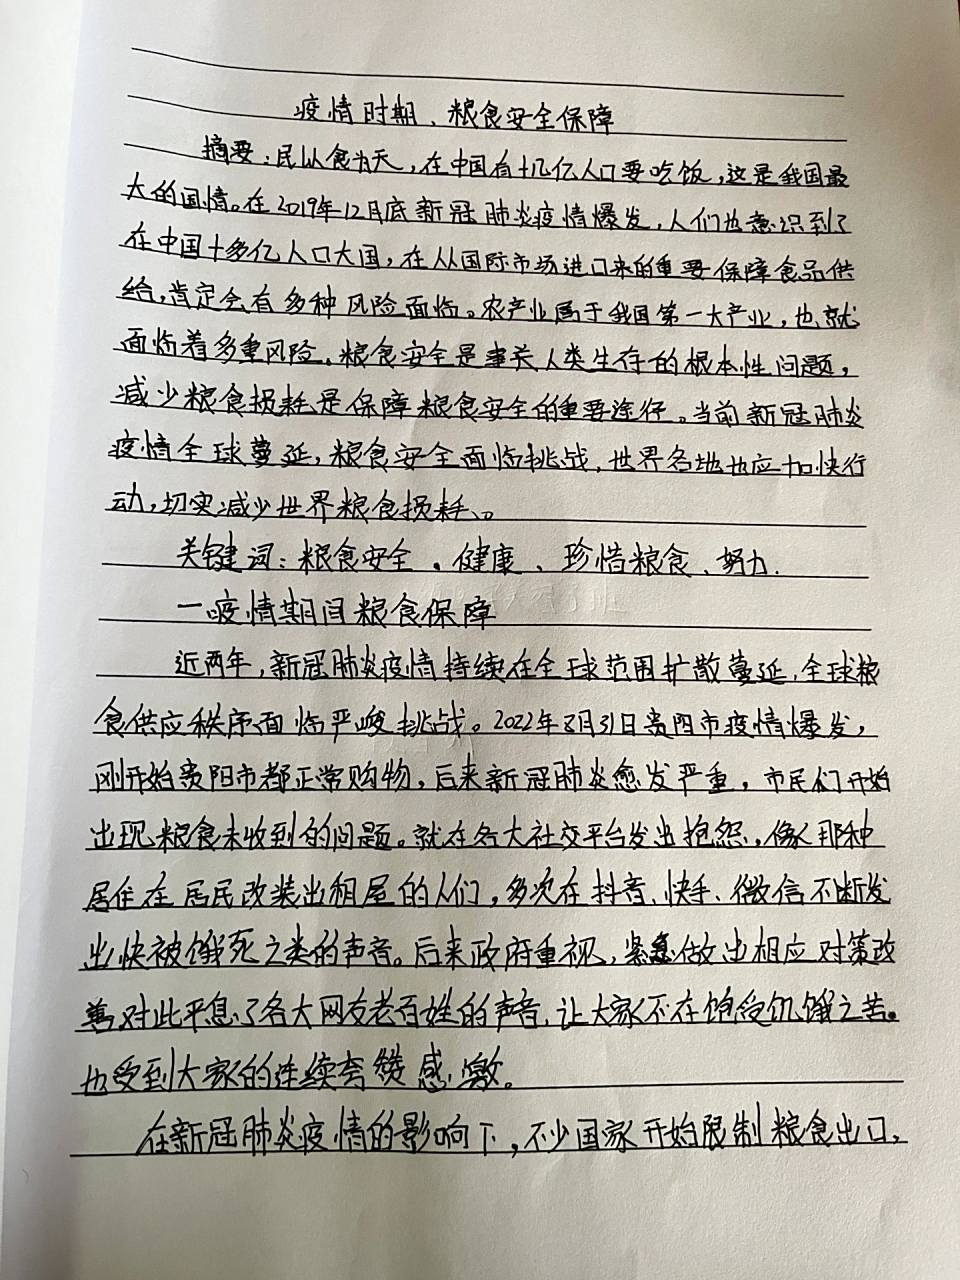 疫情时期、粮食安全保障
摘要：民以食为天，在中国有十几亿人口要吃饭，这是我国最
大的国情。在2019年12月底新冠肺炎疫情爆发，人们也意识到了
在中国十多亿人口大国，在从国际市场进口来的重要保障食品供
给，肯定会有多种风险面临。农产业属于我国第一大产业，也就
面临着多重风险。粮食安全是事关人类生存的根本性问题，
减少粮食损耗是保障粮食安全的重要途径。当前新冠肺炎
疫情全球蔓延，粮食安全面临挑战，世界各地也应加快行
动，切实减少世界粮食损耗、。
关键词：粮食安全、健康、珍惜粮食、努力.
一疫情期间粮食保障
近两年，新冠肺炎疫情持续在全球范围扩散蔓延，全球粮
食供应秩序面临严峻挑战。2022年8月31日贵阳市疫情爆发，
刚开始贵阳市都正常购物，后来新冠肺炎愈发严重，市民们开始
出现粮食未收到的问题。就在各大社交平台发出抱怨，像那种
居住在居民改装出租屋的人们，多次在抖音、快手、微信不断发
出快被饿死之类的声音。后来政府重视，紧急做出相应对策改
善对此平息了各大网友老百姓的声音，让大家不在饱受饥饿之苦。
也受到大家的连续夸赞感激。
在新冠肺炎疫情的影响下，不少国家开始限制粮食出口，